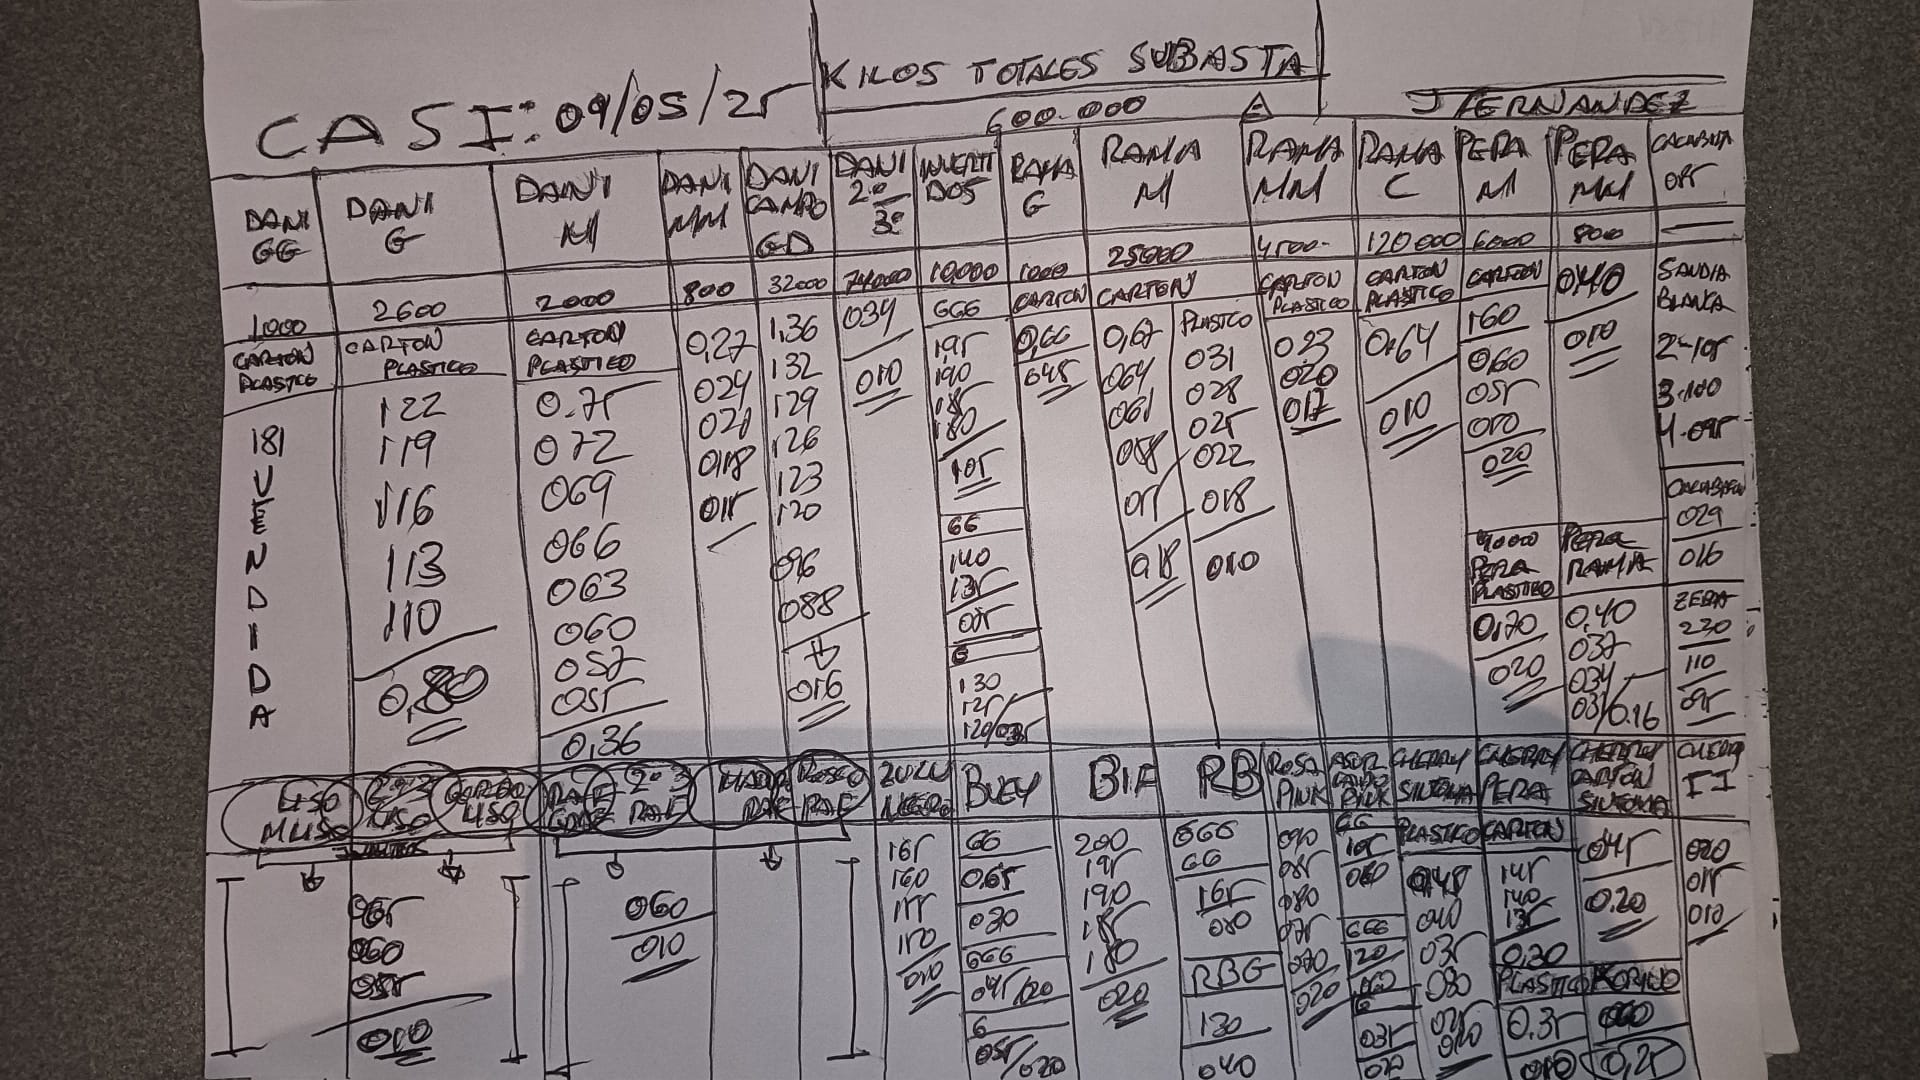 KILOS TOTALES SUBASTA
CASI: 09/05/25
600.000
J FERNANDEZ
DANI GG
DANI G
DANI M
DANI MM
DANI CAMPO GD
DANI 2º 3º
INVERTIDOS
RAMA G
RAMA M
RAMA MM
RAMA C
PERA M
PERA MM
1000
2600
2000
800
32000
74000
10,000
1000
25000
4500-
120000
6000
800
CARTON PLASTICO
181
VENDIDA
CARTON PLASTICO
122
119
116
113
110
0,80
CARTON PLASTICO
0.75
072
069
066
063
060
057
055
0,36
0,27
024
021
018
015
1,36
132
129
126
123
120
096
088
016
034
010
666
195
190
185
180
105
GG
140
135
075
G
130
125
120/035
CARTON
0,66
045
CARTON
0,67
064
061
058
055
018
PLASTICO
031
028
025
022
018
010
CARTON PLASTICO
023
020
017
CARTON PLASTICO
0,64
010
CARTON
160
060
055
050
020
PERA PLASTICO
0,70
020
040
010
PERA RAMA
0,40
037
034
031/0.16
SANDIA BLANCA
2-105
3-100
4-095
029
016
ZEBRA
230
110
095
LISO
M LISO
2º 3 LISO
LISO
065
060
055
010
2º 3 RAF
RAF
060
010
ZULU NEGRO
165
160
155
150
010
BUEY
GG
0,65
020
666
045/020
G
055/020
BIF
200
195
190
185
180
020
RB
666
GG
165
080
RBG
130
040
ROSA PINK
090
085
080
075
070
020
PINK
GG
105
060
666
120
G
035
020
CHERRY SINTOMA
PLASTICO
0,45
040
035
030
025
020
CHERRY PERA
CARTON
145
140
135
0,30
PLASTICO
0.35
010
CHERRY CARTON SINTOMA
045
0.20
0,25
CHERRY II
020
015
010